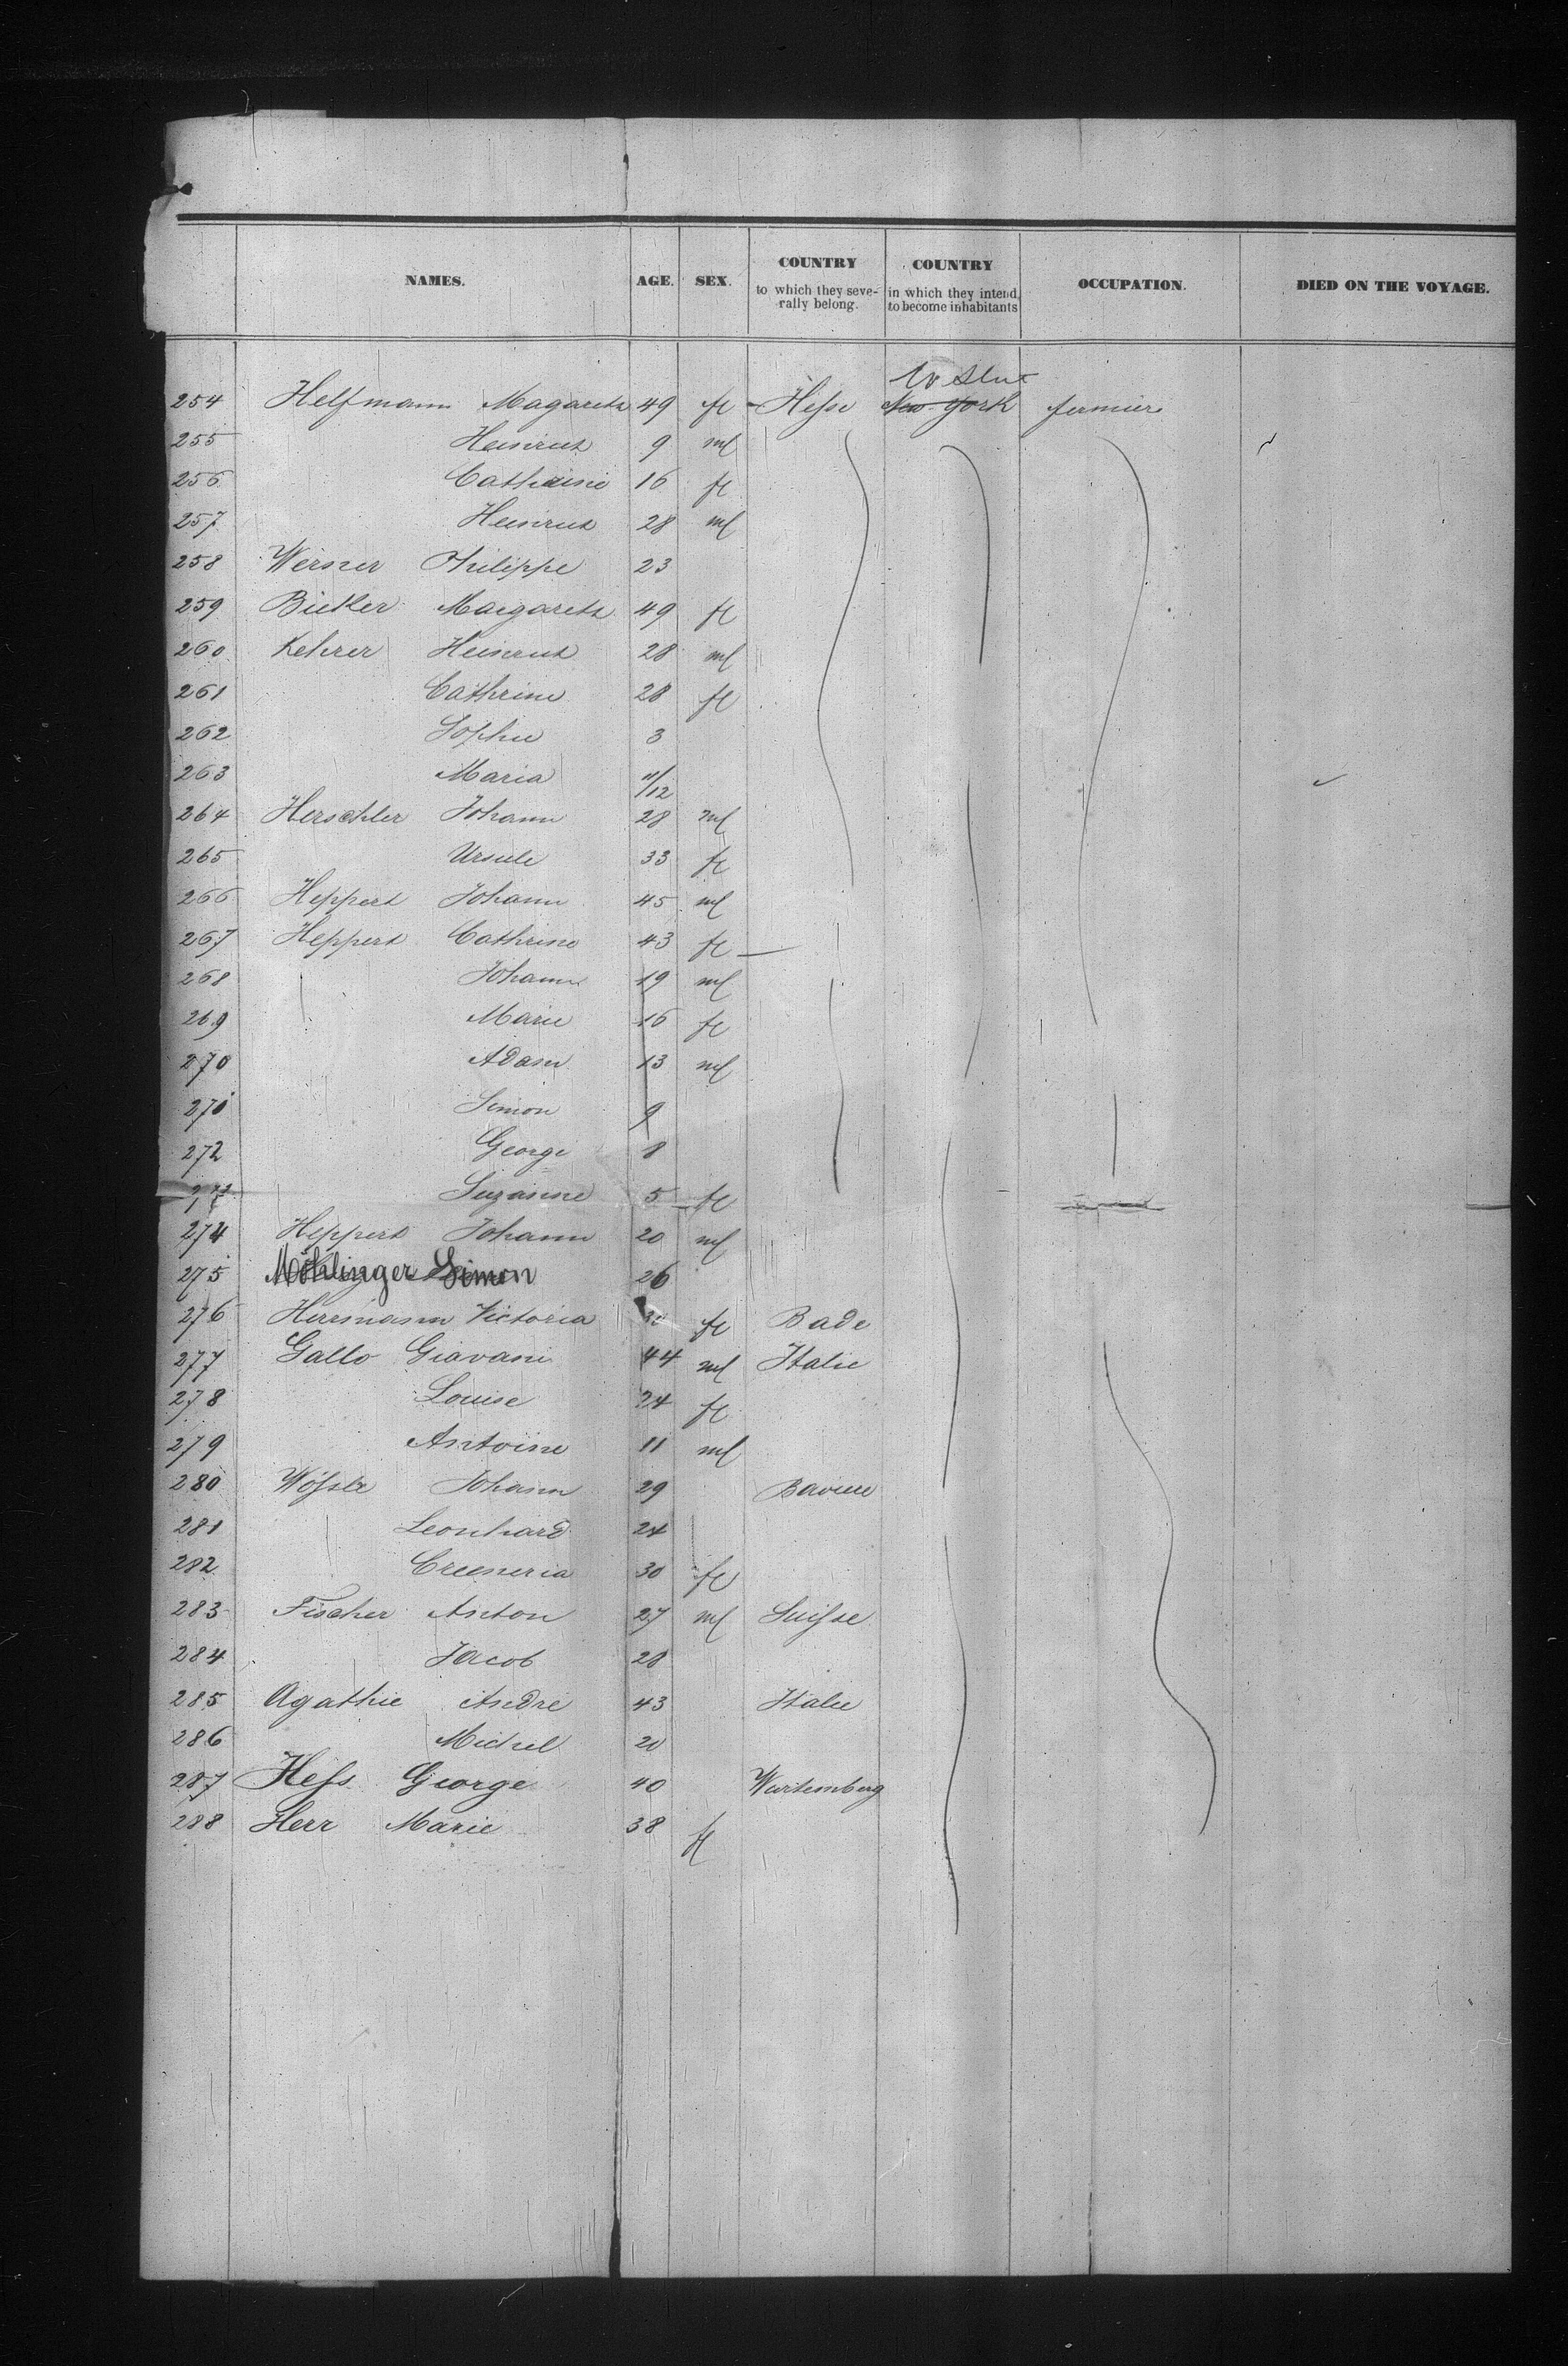 NAMES. AGE. SEX. COUNTRY to which they severally belong. COUNTRY in which they intend to become inhabitants OCCUPATION. DIED ON THE VOYAGE.
254 Helfmann Magareth 49 fl Hesse New York fermier
255 Heinrich 9 ml
256 Catharine 16 fl
257 Heinrich 28 ml
258 Werner Philippe 23
259 Margareth 49 fl
260 Kehrer Heinrich 28 ml
261 Cathrine 28 fl
262 Sophie 3
263 Maria 11/12
264 Herschler Johann 28 ml
265 Ursule 33 fl
266 Heppert Johann 45 ml
267 Heppert Cathrine 43 fl
268 Johann 19 ml
269 Marie 16 fl
270 Adam 13 ml
271 Simon 9
272 George 8
273 Suzanne 5 fl
274 Heppert Johann 20 ml
275 Möhlinger Simon 26
276 Herrmann Victoria fl Bade
277 Gallo Giavani 44 ml Italie
278 Louise 24 fl
279 Antoine 11 ml
280 Johann 29 Baviere
281 Leonhard 24
282 30 fl
283 Fischer Anton 27 ml Suisse
284 Jacob 28
285 Agathie André 43 Italie
286 Michel 20
287 Hess George 40 Wurtemberg
288 Herr Marie 38 fl